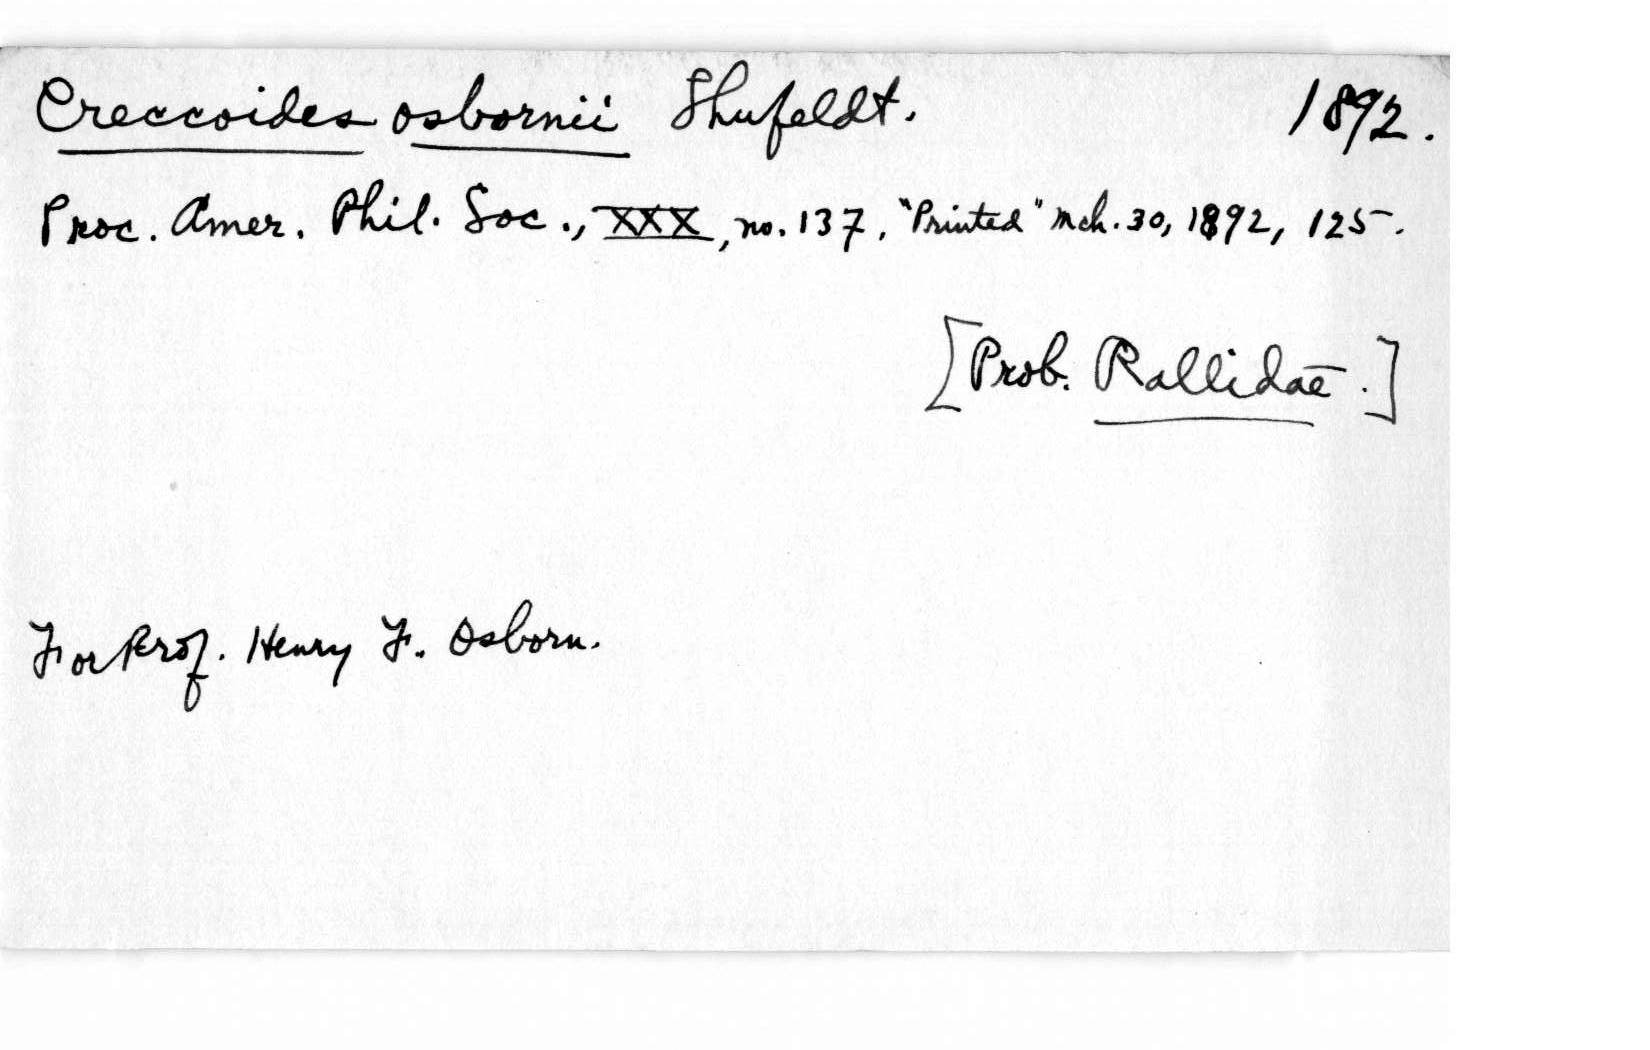 Creccoides osbornii Shufeldt. 1892.
Proc. Amer. Phil. Soc., XXX, no. 137, "Printed" Mch. 30, 1892, 125.
[Prob. Rallidae.]
For Prof. Henry F. Osborn.